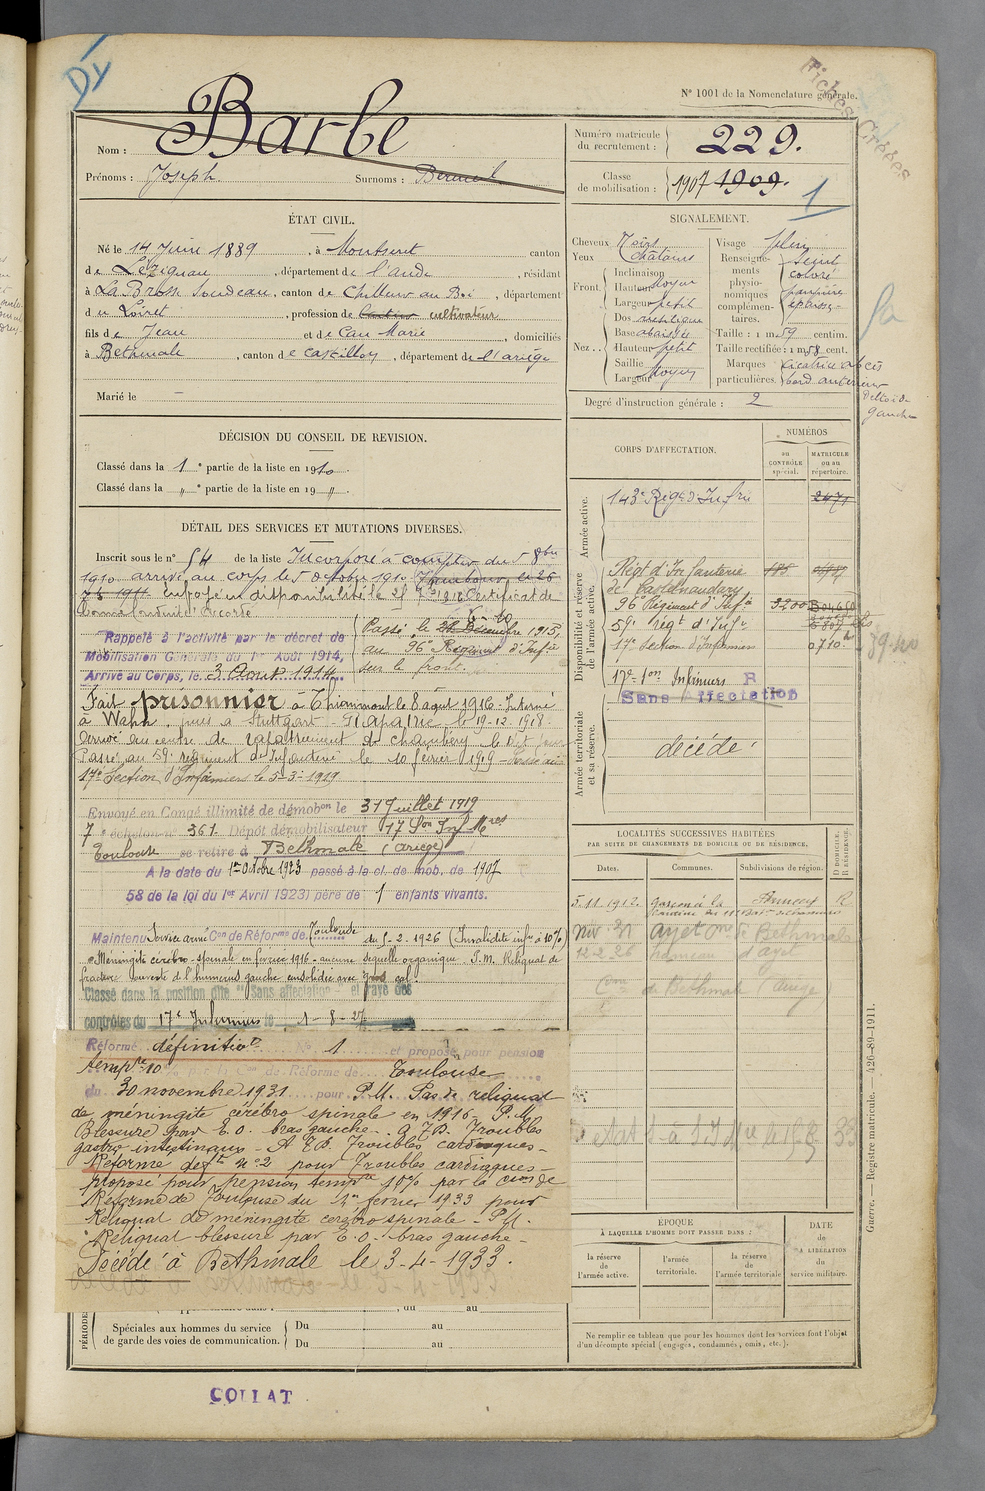 Dy
Fiches Créées
N° 1001 de la Nomenclature générale.
Nom : Barbe
Prénoms : Joseph. Surnoms :
Numéro matricule du recrutement : 229.
Classe de mobilisation : 1907 1909.
1
ÉTAT CIVIL.
Né le 14 Juin 1889, à Montseret canton
de Lézignan, département de l'aude, résidant
à La Brosse, canton de Chilleur au Boi, département
du Loiret, profession de cultivateur
fils de Jean et de Cau Marie domiciliés
à Bethmale, canton de Castillon, département de l'ariège
Marié le —
SIGNALEMENT.
Cheveux Noirs
Yeux chatains
Front. Inclinaison
Hauteur Moyen
Largeur petit
Nez.. Dos rectiligne
Base abaissée
Hauteur petit
Saillie
Largeur Moyen
Visage plein
Renseignements physionomiques complémentaires. teint coloré paupière épaisse
Taille : 1 m. 59 centim.
Taille rectifiée : 1 m. 58 cent.
Marques particulières. Cicatrice abcès
bord antérieur
Deltoïde
gauche
Degré d'instruction générale : 2
DÉCISION DU CONSEIL DE REVISION.
Classé dans la 1e partie de la liste en 1910.
Classé dans la „ e partie de la liste en 19 „
DÉTAIL DES SERVICES ET MUTATIONS DIVERSES.
Inscrit sous le n° 54 de la liste Incorporé à compter du 5 8bre
1910 arrivé au corps le 5 octobre 1910
Envoyé en disponibilité le Certificat de
Bonne Conduite Accordé
Rappelé à l'activité par le décret de
Mobilisation Générale du 1er Août 1914,
Arrivé au Corps, le 3 Aout 1914
Passé, le 21 Décembre 1915,
au 96e Régiment d'Infie
sur le front.
Fait prisonnier à Thiaumont le 8 août 1916 - Interné
à Wahn, puis à Stuttgart - Rapatrié le 19-12-1918.
Arrivé au centre de rapatriement de chambéry le
Passé au 59e régiment d'Infanterie le 10 février 1919
17e Section d'Infirmiers le 5-3-1919
Envoyé en Congé illimité de démobon le 31 Juillet 1919
7e échelon n° 361 Dépôt démobilisateur 17 Son Inf Mres
Toulouse se retire à Bethmale (ariège)
A la date du 1er Octobre 1923 passé à la cl. de mob. de 1907
58 de la loi du 1er Avril 1923) père de 1 enfants vivants.
Maintenu Service armé Con de Réforme de Toulouse du 5-2-1926 (Invalidité infre à 10%)
Méningite cérébro-spinale en février 1916 - aucune séquelle organique. P.M. Reliquat de
fracture ouverte de l'humerus gauche consolidée avec gros cal.
Classé dans la position dite "Sans affectation" et rayé des
contrôles du 17e Infirmiers le 1-8-27
Réformé définitivt N° 1 et proposé pour pension
tempre 10% par la Con de Réforme de Toulouse
du 30 novembre 1931 pour P.M. Pas de reliquat
de méningite cérébro spinale en 1916. P.M.
Blessure par E.O. bras gauche. A.T.B. Troubles
gastro-intestinaux - A T.B. Troubles cardiaques -
Réforme deft n°2 pour Troubles cardiaques -
proposé pour pension tempre 10% par la Con de
Réforme de Toulouse du 1er fevrier 1933 pour
Reliquat de méningite cérébro spinale - P.M.
Reliquat blessure par E.O. bras gauche -
Décédé à Bethmale le 3-4-1933.
CORPS D'AFFECTATION.
NUMÉROS
au CONTRÔLE spécial.
MATRICULE ou au répertoire.
Armée active.
143e Régt d'Infrie 2471
Disponibilité et réserve de l'armée active.
Régt d'Infanterie de Castelnaudary
96e Régiment d'Infie 3200
59e régt d'Infie
17e Section d'Infirmiers 0710
17e Son Infirmiers R
Sans Affectation
Armée territoriale et sa réserve.
décédé
LOCALITÉS SUCCESSIVES HABITÉES
PAR SUITE DE CHANGEMENTS DE DOMICILE OU DE RÉSIDENCE.
Dates. Communes. Subdivisions de région. D DOMICILE. R RÉSIDENCE.
5.11.1912. Annecy R
Niv. 21 Ayet on de Bethmale
12.2.26 hameau d'ayet
Con de Bethmale (Ariège)
ÉPOQUE
À LAQUELLE L'HOMME DOIT PASSER DANS :
la réserve de l'armée active.
l'armée territoriale.
la réserve de l'armée territoriale
DATE de la LIBÉRATION du service militaire.
PÉRIODES
Spéciales aux hommes du service de garde des voies de communication.
Du au
Du au
Ne remplir ce tableau que pour les hommes dont les services font l'objet
d'un décompte spécial (engagés, condamnés, omis, etc.).
Guerre. — Registre matricule. — 426-89-1911.
COLLAT